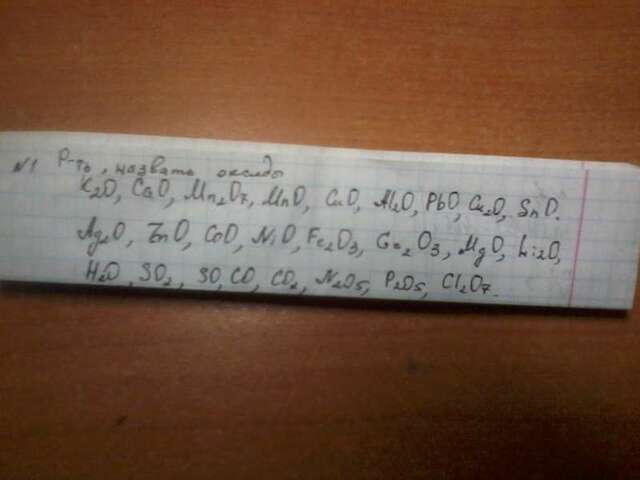 N1 Р-ть, назвать оксиды
K2O, CaO, Mn2O7, MnO, CuO, Al2O, PbO, Cu2O, SnO.
Ag2O, ZnO, CoO, NiO, Fe2O3, Ga2O3, MgO, Li2O,
H2O, SO2, SO, CO, CO2, N2O5, P2O5, Cl2O7.